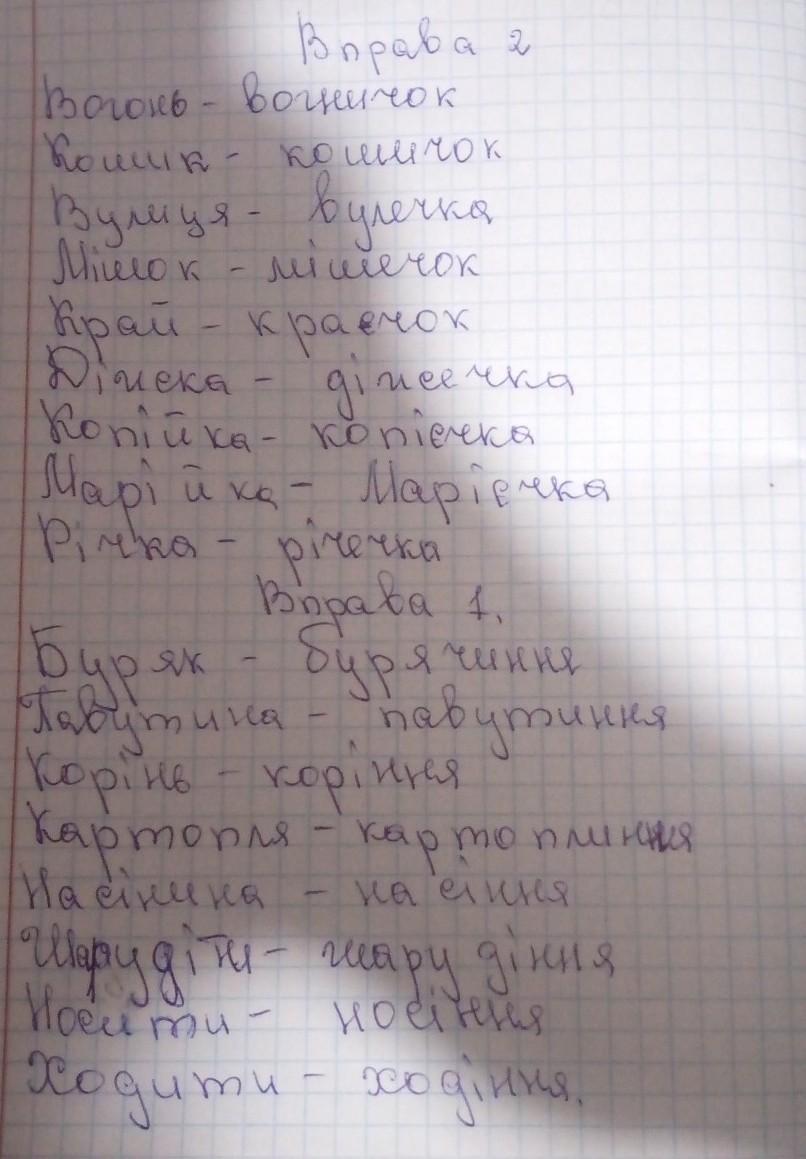 Вправа 2
Вогонь - вогничок
Кошик - кошичок
Вулиця - вулечка
Мішок - мішечок
Край - краєчок
Діжка - діжечка
Копійка - копієчка
Марійка - Марієчка
Річка - річечка
Вправа 1.
Буряк - бурячиння
Павутина - павутиння
Корінь - коріння
Картопля - картоплиння
Насінина - насіння
Шарудіти - шарудіння
Носити - носіння
Ходити - ходіння.